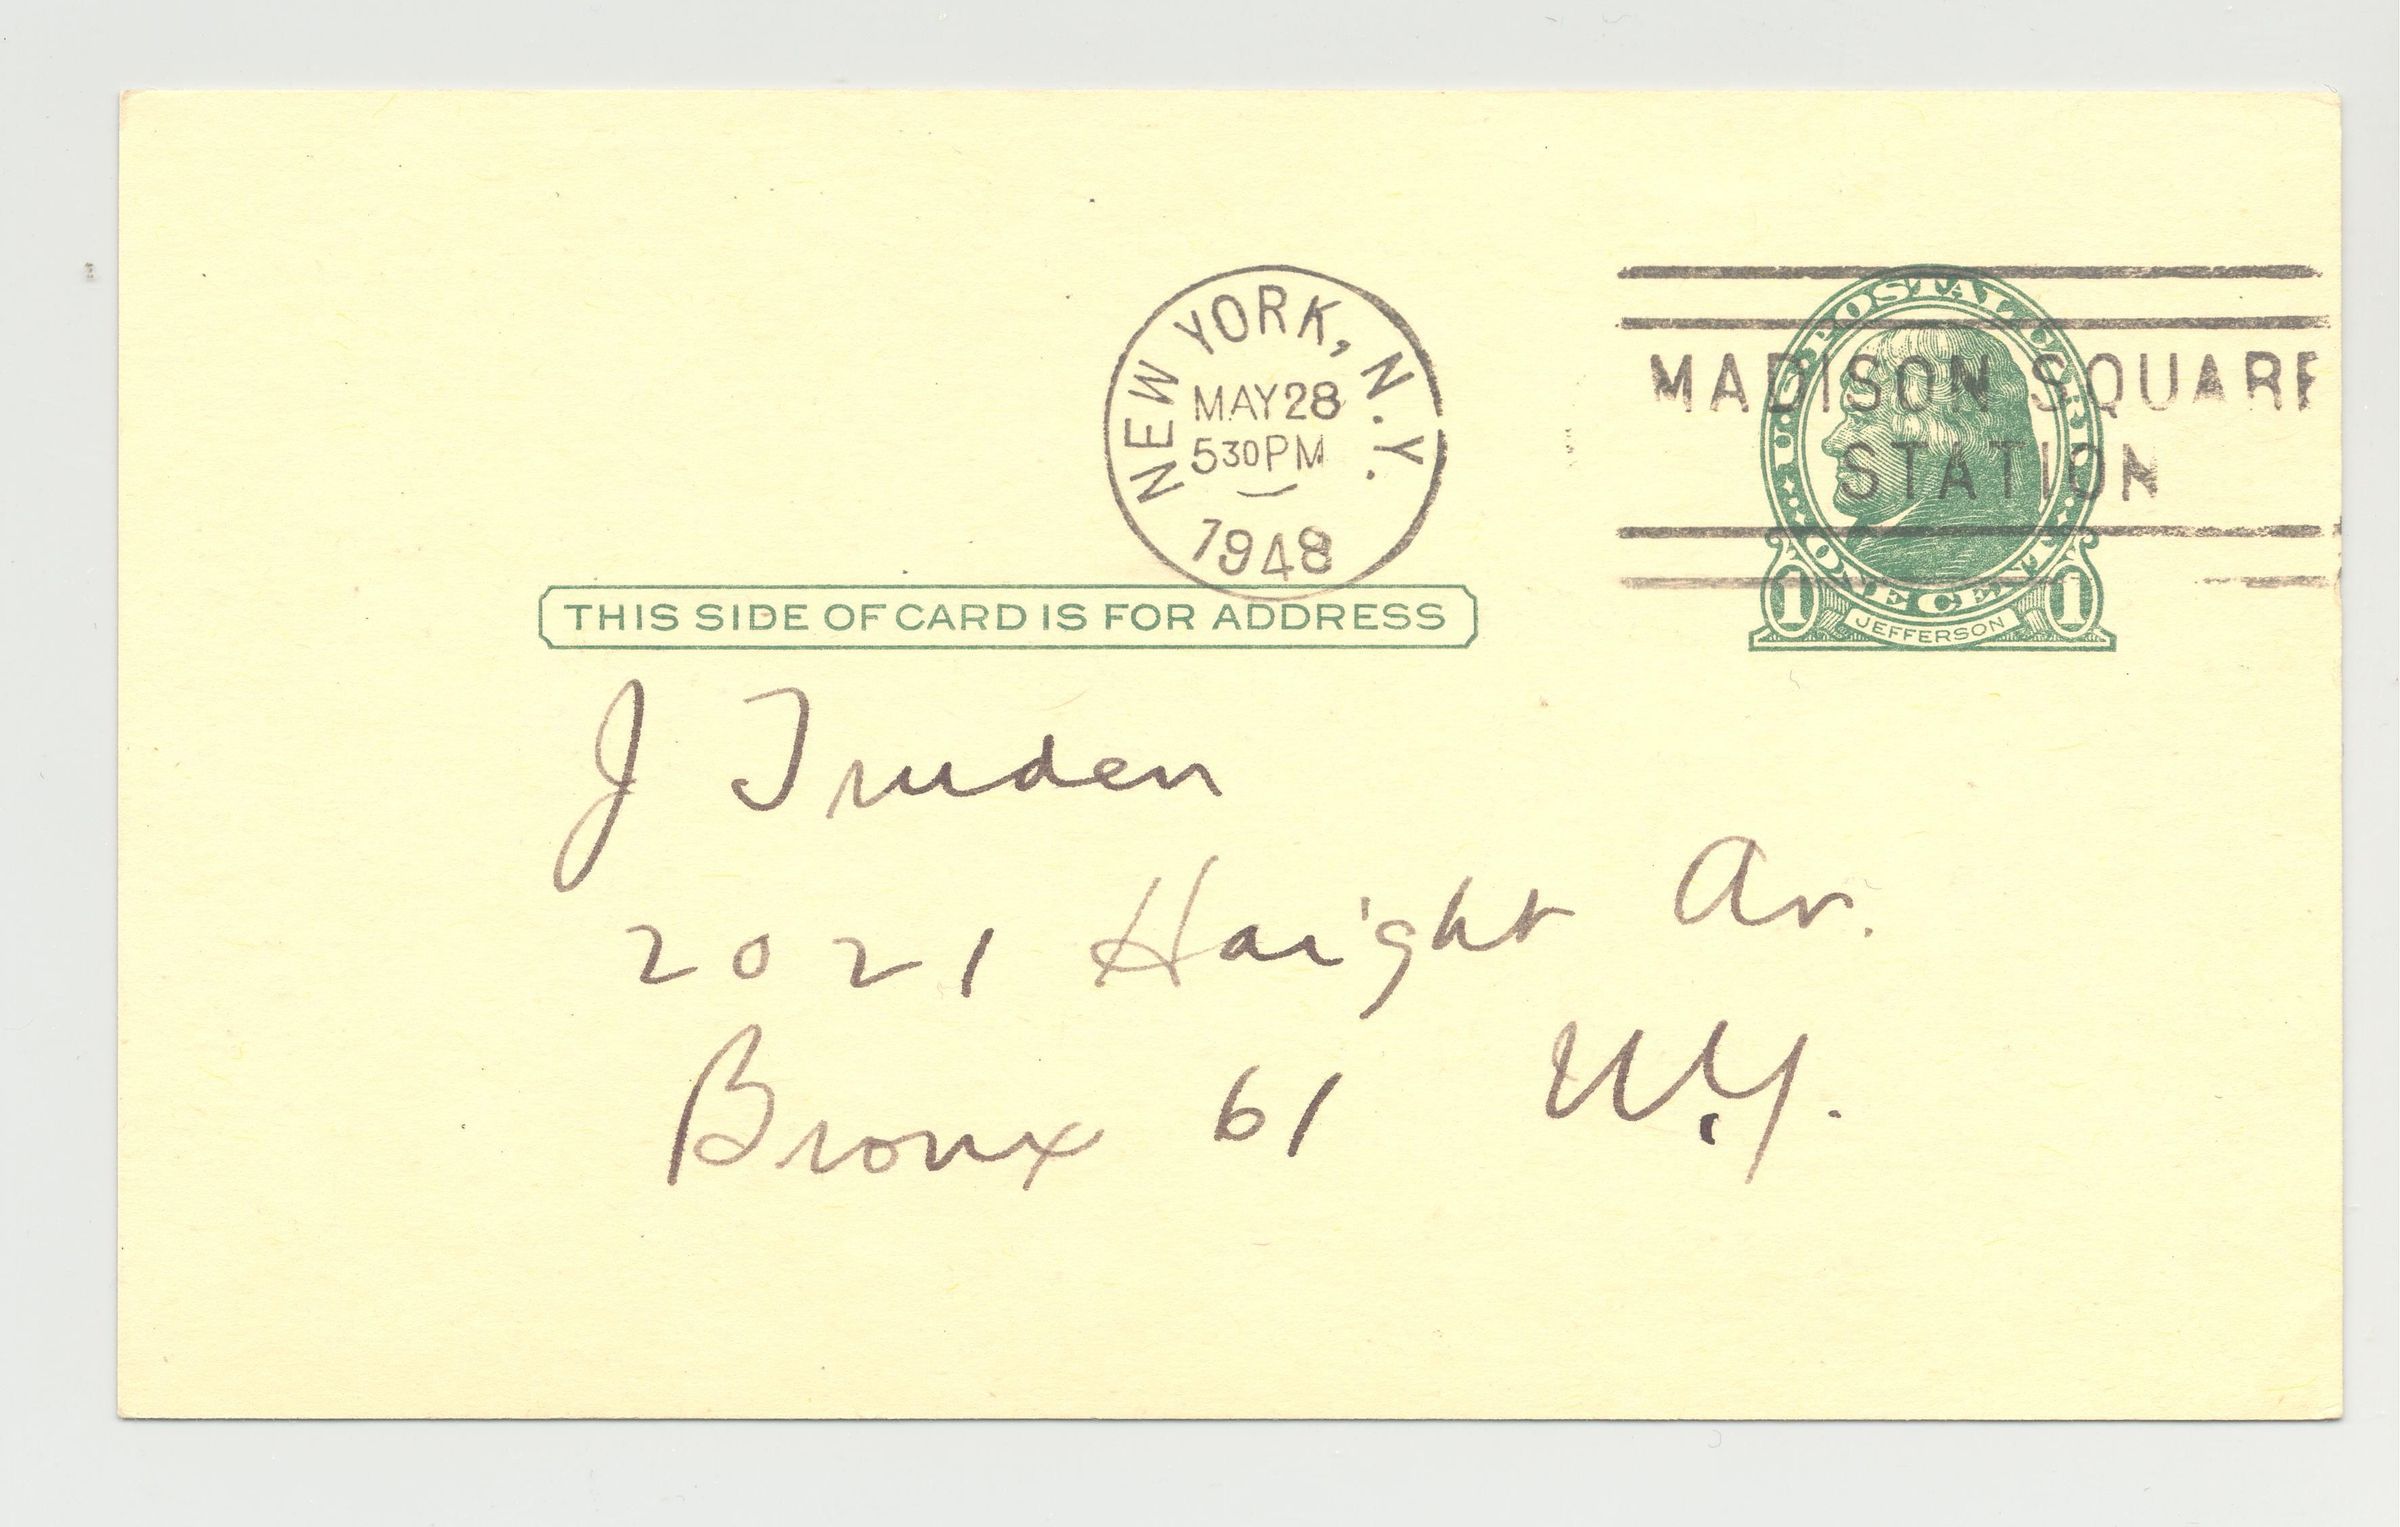 NEW YORK, N.Y.
MAY 28
530 PM
1948
MADISON SQUARE
STATION
U.S. POSTAL CARD
ONE CENT
1 JEFFERSON 1
THIS SIDE OF CARD IS FOR ADDRESS
J Truden
2021 Haight Av.
Bronx 61 N.Y.